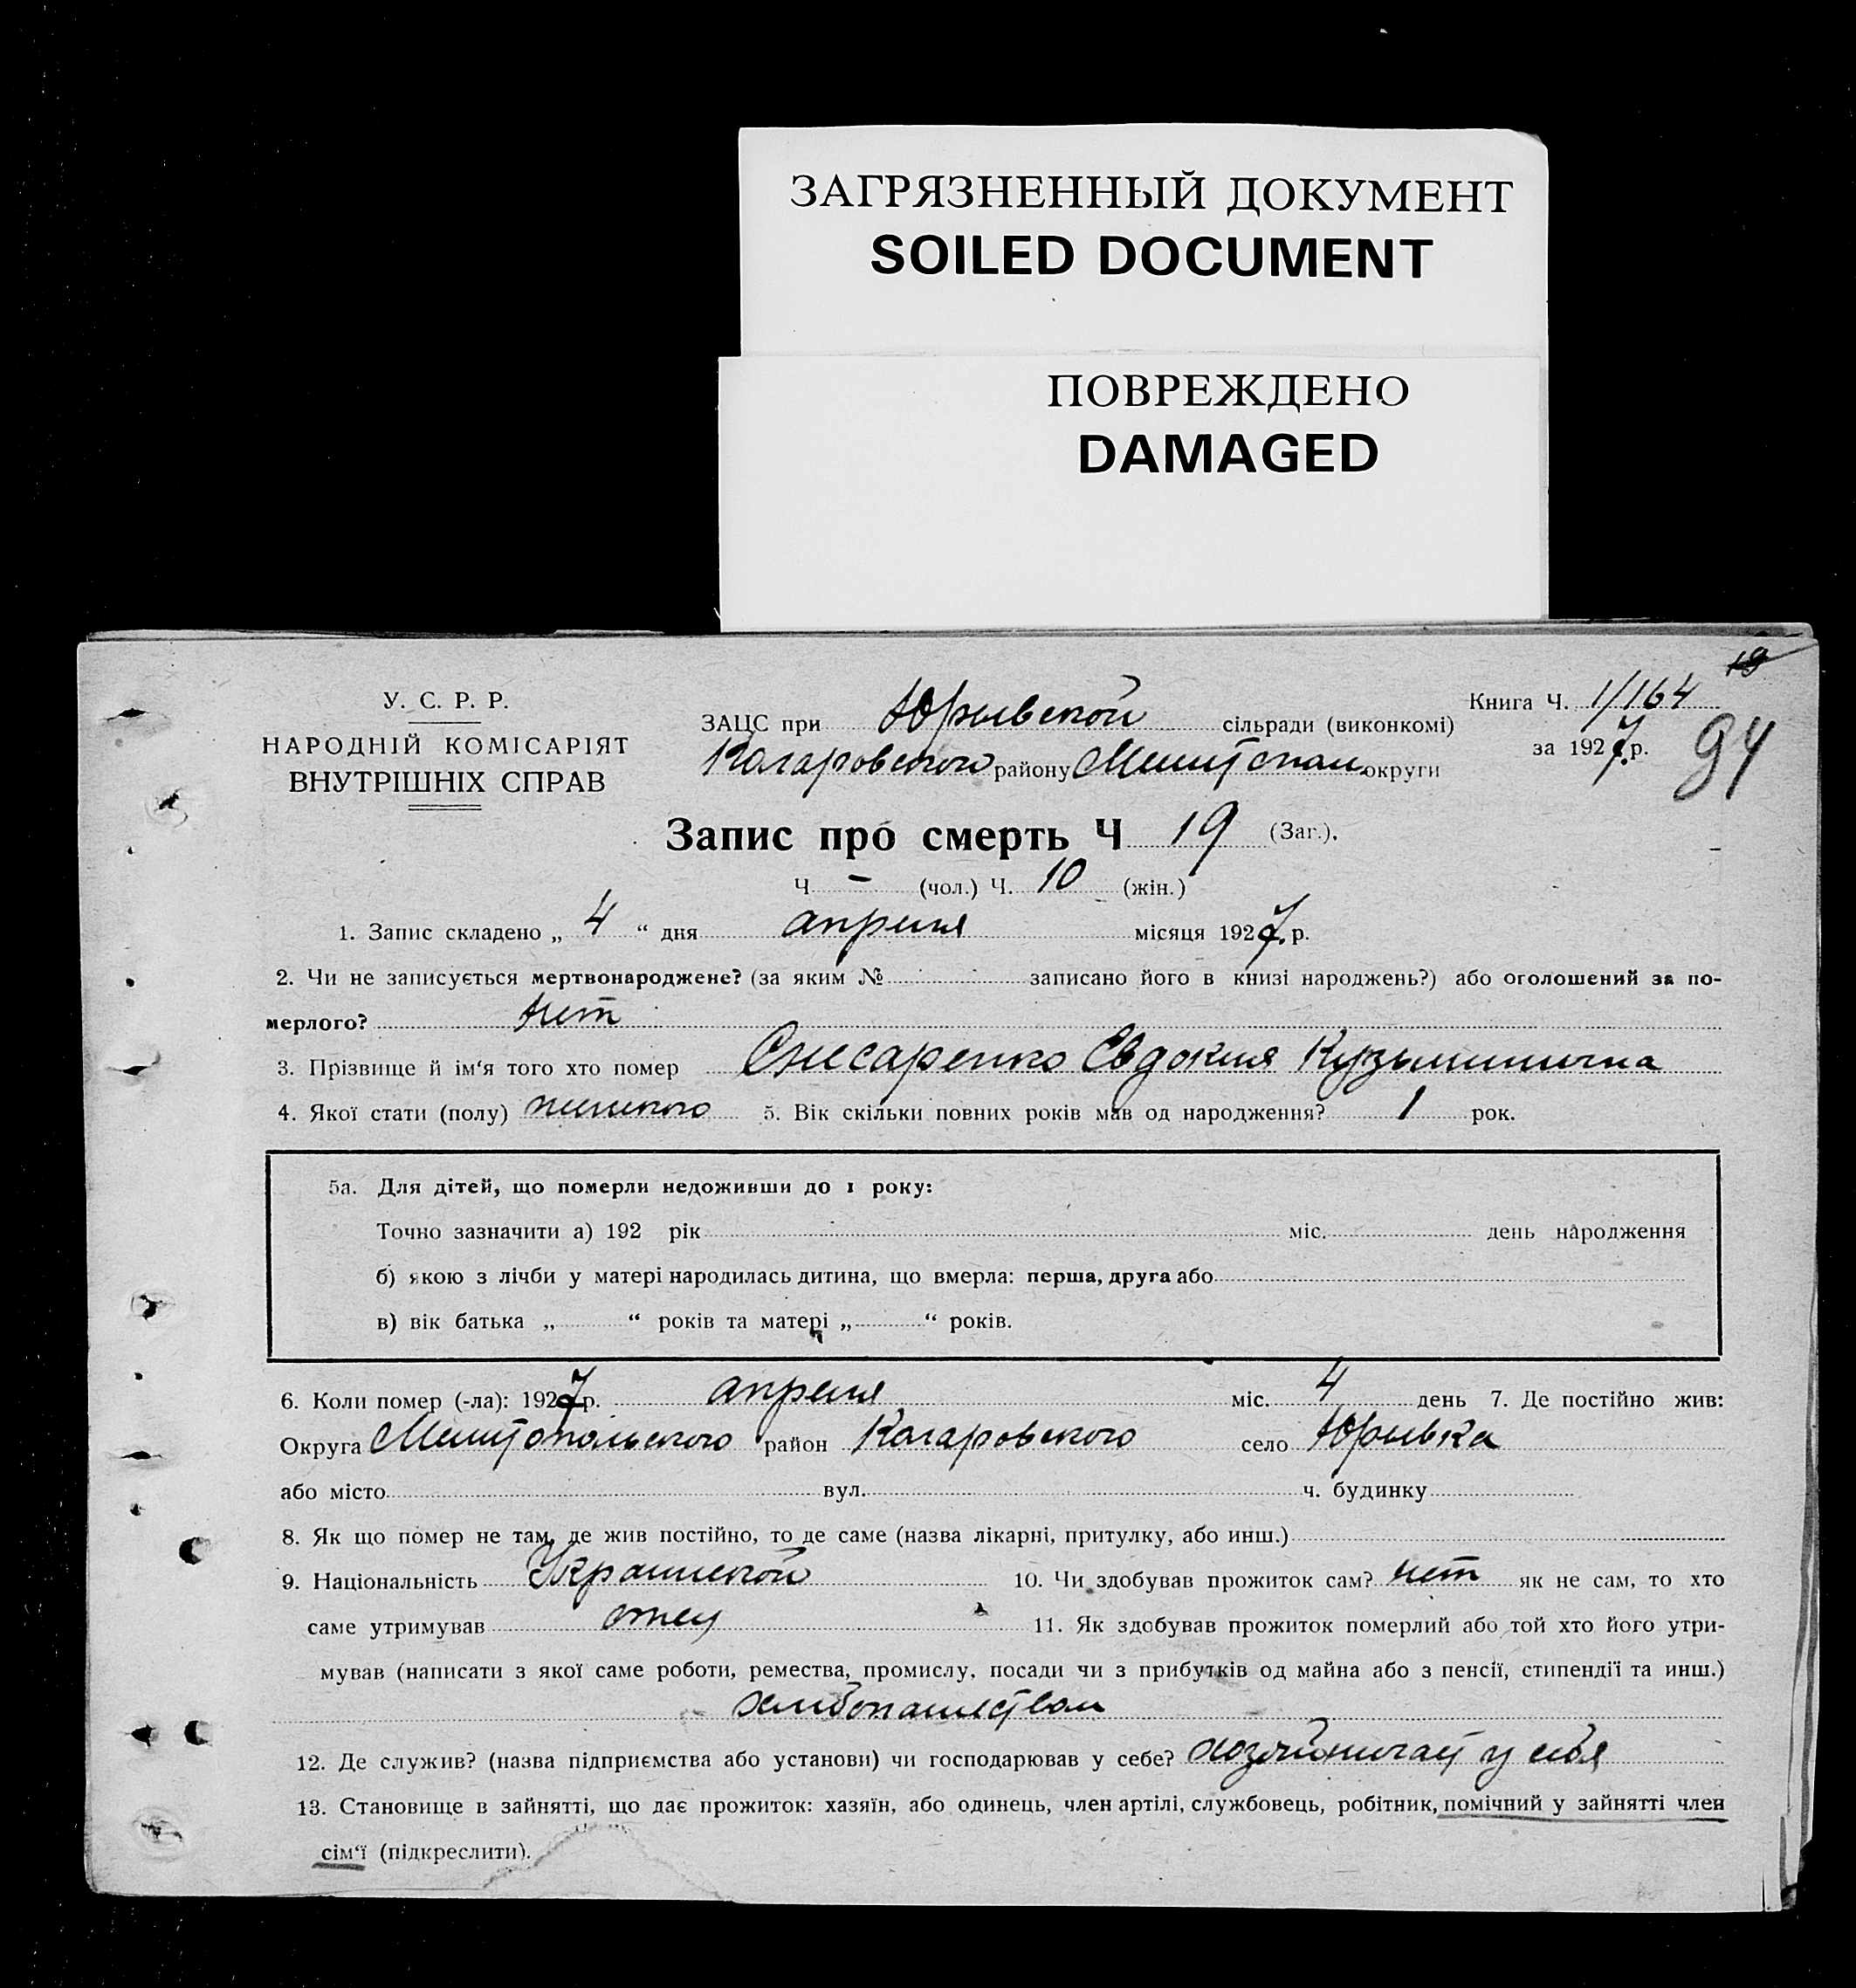 ЗАГРЯЗНЕННЫЙ ДОКУМЕНТ
SOILED DOCUMENT
ПОВРЕЖДЕНО
DAMAGED
19
У. С. Р. Р.
НАРОДНІЙ КОМІСАРІЯТ
ВНУТРІШНІХ СПРАВ
ЗАЦС при Юрьевской сільради (виконкомі)
Коларовского району Мелитопол. округи
Книга Ч. 1/164
за 1927 р.
94
Запис про смерть Ч 19 (Заг.).
Ч. – (чол.) Ч. 10 (жін.)
1. Запис складено „ 4 “ дня апреля місяця 1927. р.
2. Чи не записується мертвонароджене? (за яким № записано його в книзі народжень?) або оголошений за по-
мерлого? нет
3. Прізвище й ім‘я того хто помер Снесаренко Евдокия Кузьминична
4. Якої стати (полу) женского 5. Вік скільки повних років мав од народження? 1 рок.
5а. Для дітей, що померли недоживши до 1 року:
Точно зазначити а) 192 рік міс. день народження
б) якою з лічби у матері народилась дитина, що вмерла: перша, друга або
в) вік батька „ “ років та матері „ “ років.
6. Коли помер (-ла): 1927 р. апреля міс. 4 день 7. Де постійно жив:
Округа Мелитопольского район Коларовского село Юрьевка
або місто вул. ч. будинку
8. Як що помер не там, де жив постійно, то де саме (назва лікарні, притулку, або инш.)
9. Національність Украинской 10. Чи здобував прожиток сам? нет як не сам, то хто
саме утримував отец 11. Як здобував прожиток померлий або той хто його утри-
мував (написати з якої саме роботи, ремества, промислу, посади чи з прибутків од майна або з пенсії, стипендії та инш.)
хлебопашеством
12. Де служив? (назва підприємства або установи) чи господарював у себе? хозяйничает у себя
13. Становище в зайнятті, що дає прожиток: хазяїн, або одинець, член артілі, службовець, робітник, помічний у зайнятті член
сім‘ї (підкреслити).